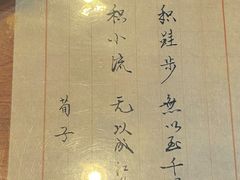 积跬步 無以至千
积小流 无以成江
荀子